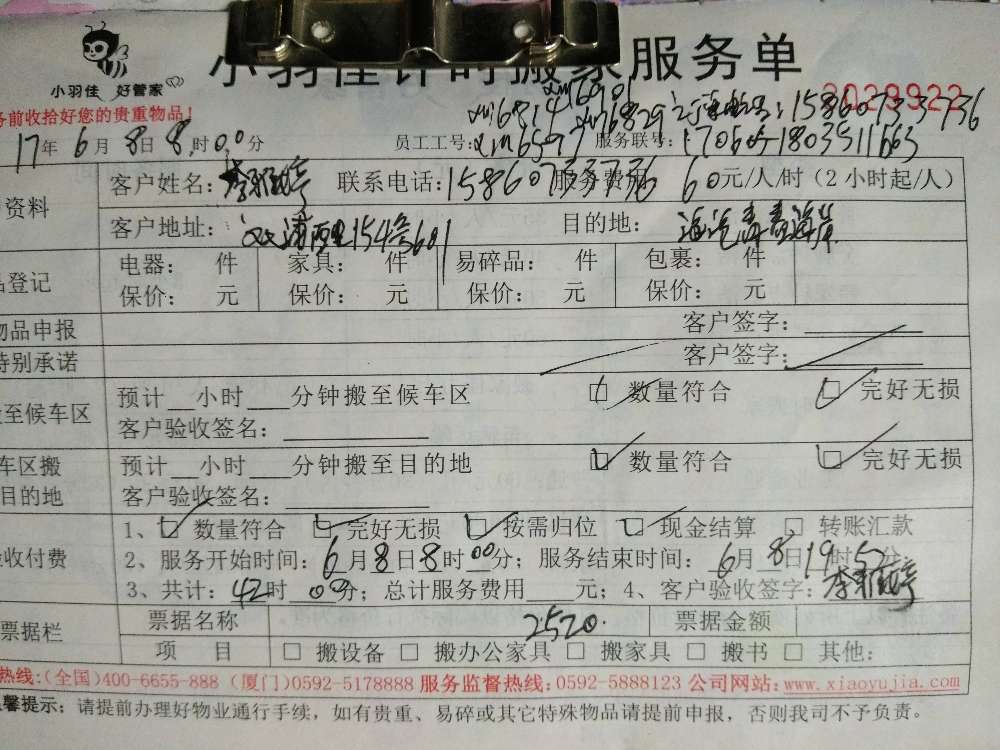 小羽佳 好管家
小羽佳计时搬家服务单
务前收拾好您的贵重物品!
2029922
xm6814 xm6829 15860733736
17年6月8日8时00分 员工工号: xm6597 服务联号: 170605-1803511663
资料 客户姓名: 李雅婷 联系电话: 15860733736 服务费用 60元/人/时(2小时起/人)
客户地址: 浦西里154号601 目的地: 海沧青青海岸
品登记 电器: 件 家具: 件 易碎品: 件 包裹: 件
保价: 元 保价: 元 保价: 元 保价: 元
物品申报 客户签字:
特别承诺 客户签字:
搬至候车区 预计__小时___分钟搬至候车区 数量符合 完好无损
客户验收签名:
车区搬 预计__小时___分钟搬至目的地 数量符合 完好无损
目的地 客户验收签名:
验收付费 1、 数量符合 完好无损 按需归位 现金结算 转账汇款
2、服务开始时间: 6月8日8时00分; 服务结束时间: 6月8日19时5分
3、共计: 42时00分; 总计服务费用____元; 4、客户验收签字: 李雅婷
票据栏 票据名称 2520. 票据金额
项 目 □ 搬设备 □ 搬办公家具 □ 搬家具 □ 搬书 □ 其他:
热线:(全国)400-6655-888 (厦门)0592-5178888 服务监督热线:0592-5888123 公司网站:www.xiaoyujia.com
温馨提示: 请提前办理好物业通行手续, 如有贵重、易碎或其它特殊物品请提前申报, 否则我司不予负责。